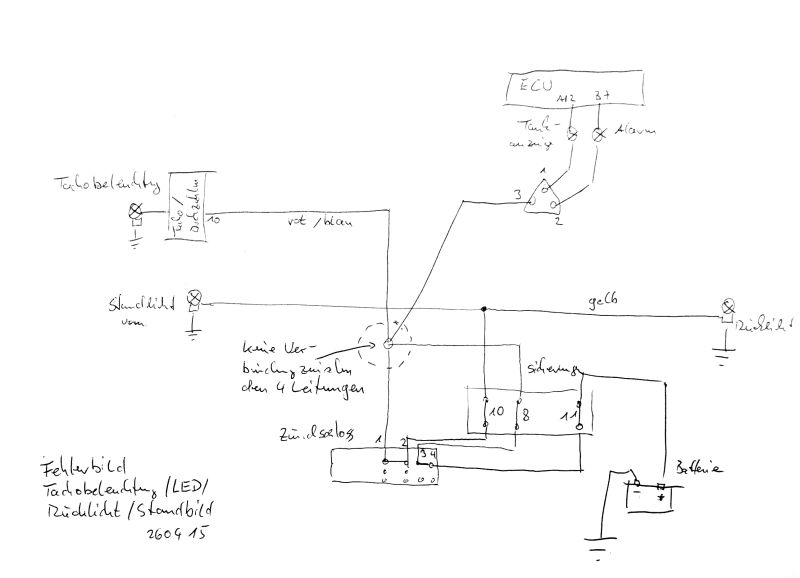 ECU
A12 B7
Tank-
anzeige
Alarm
1
3
2
Tachobeleuchtg
Tacho/
Drehzahlm
10
rot/blau
Standlicht
vorn
gelb
Rücklicht
keine Ver-
bindung zwischen
den 4 Leitungen
Sicherung
10 8 11
Zündschloss
1 2 3 4
Batterie
- +
Fehlerbild
Tachobeleuchtung/LED/
Rücklicht/Standbild
260415